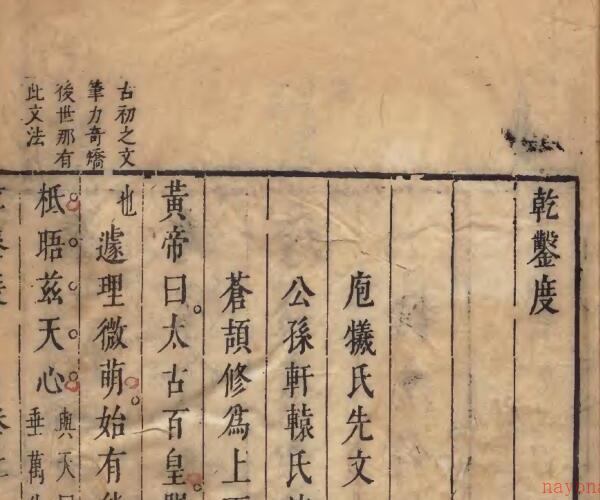 乾鑿度
庖犧氏先文
公孫軒轅氏
蒼頡修爲上
黃帝曰太古百皇
也
遽理微萌始有
柢晤茲天心
與天
垂萬
古初之文
筆力奇矯
後世那有
此文法
nayona